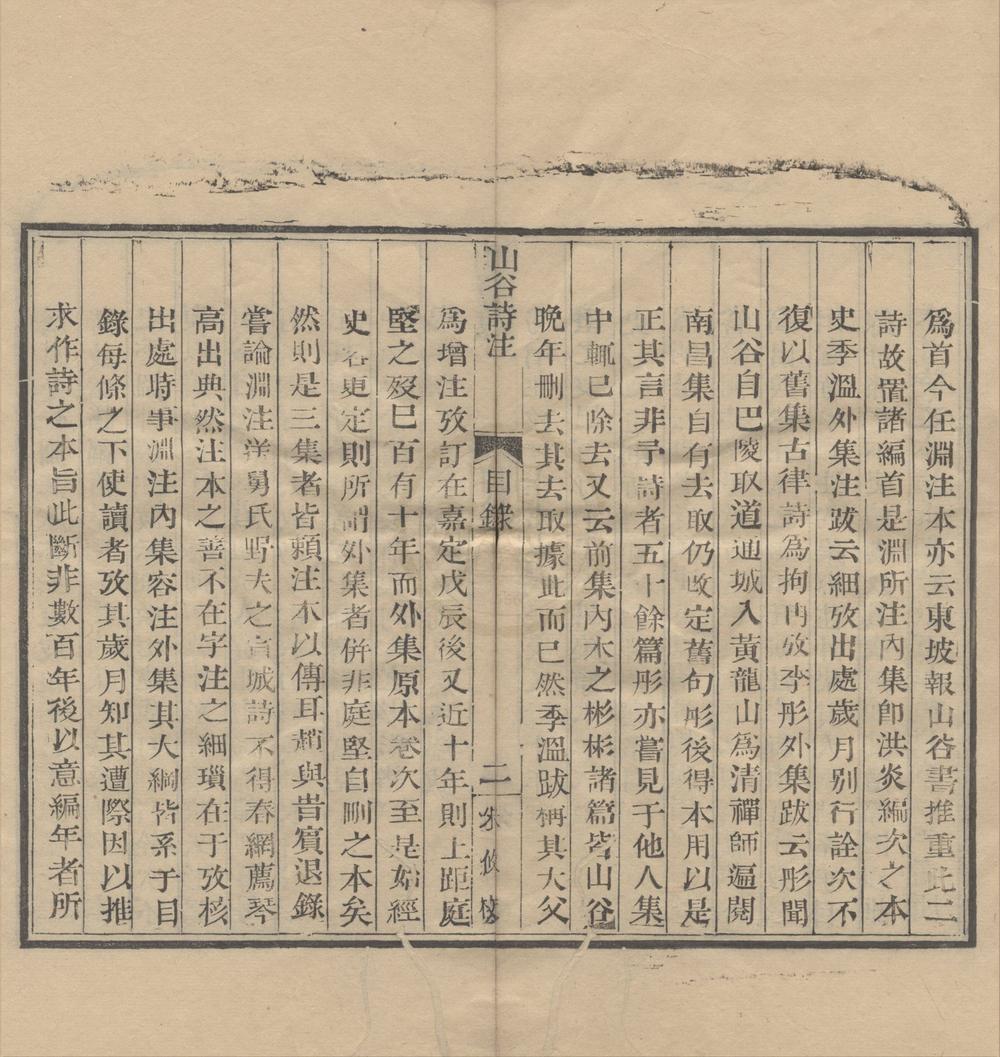 爲首今任淵注本亦云東坡報山谷書推重此二
詩故置諸編首是淵所注內集卽洪炎編次之本
史季溫外集注跋云細攷出處歲月别行詮次不
復以舊集古律詩爲拘冉攷李彤外集跋云彤聞
山谷自巴陵取道通城入黃龍山爲清禪師遍閱
南昌集自有去取仍改定舊句彤後得本用以是
正其言非予詩者五十餘篇彤亦嘗見于他人集
中輒巳除去又云前集內木之彬彬諸篇皆山谷
晚年刪去其去取據此而巳然季溫跋稱其大父
山谷詩注
目錄
二
爲增注攷訂在嘉定戊辰後又近十年則上距庭
堅之歿巳百有十年而外集原本卷次至是始經
史容更定則所謂外集者併非庭堅自刪之本矣
然則是三集者皆賴注本以傳耳趙與旹賓退錄
嘗論淵注送舅氏野夫之宣城詩不得春網薦琴
高出典然注本之善不在字注之細瑣在于攷核
出處時事淵注內集容注外集其大綱皆系于目
錄每條之下使讀者攷其歲月知其遭際因以推
求作詩之本旨此斷非數百年後以意編年者所